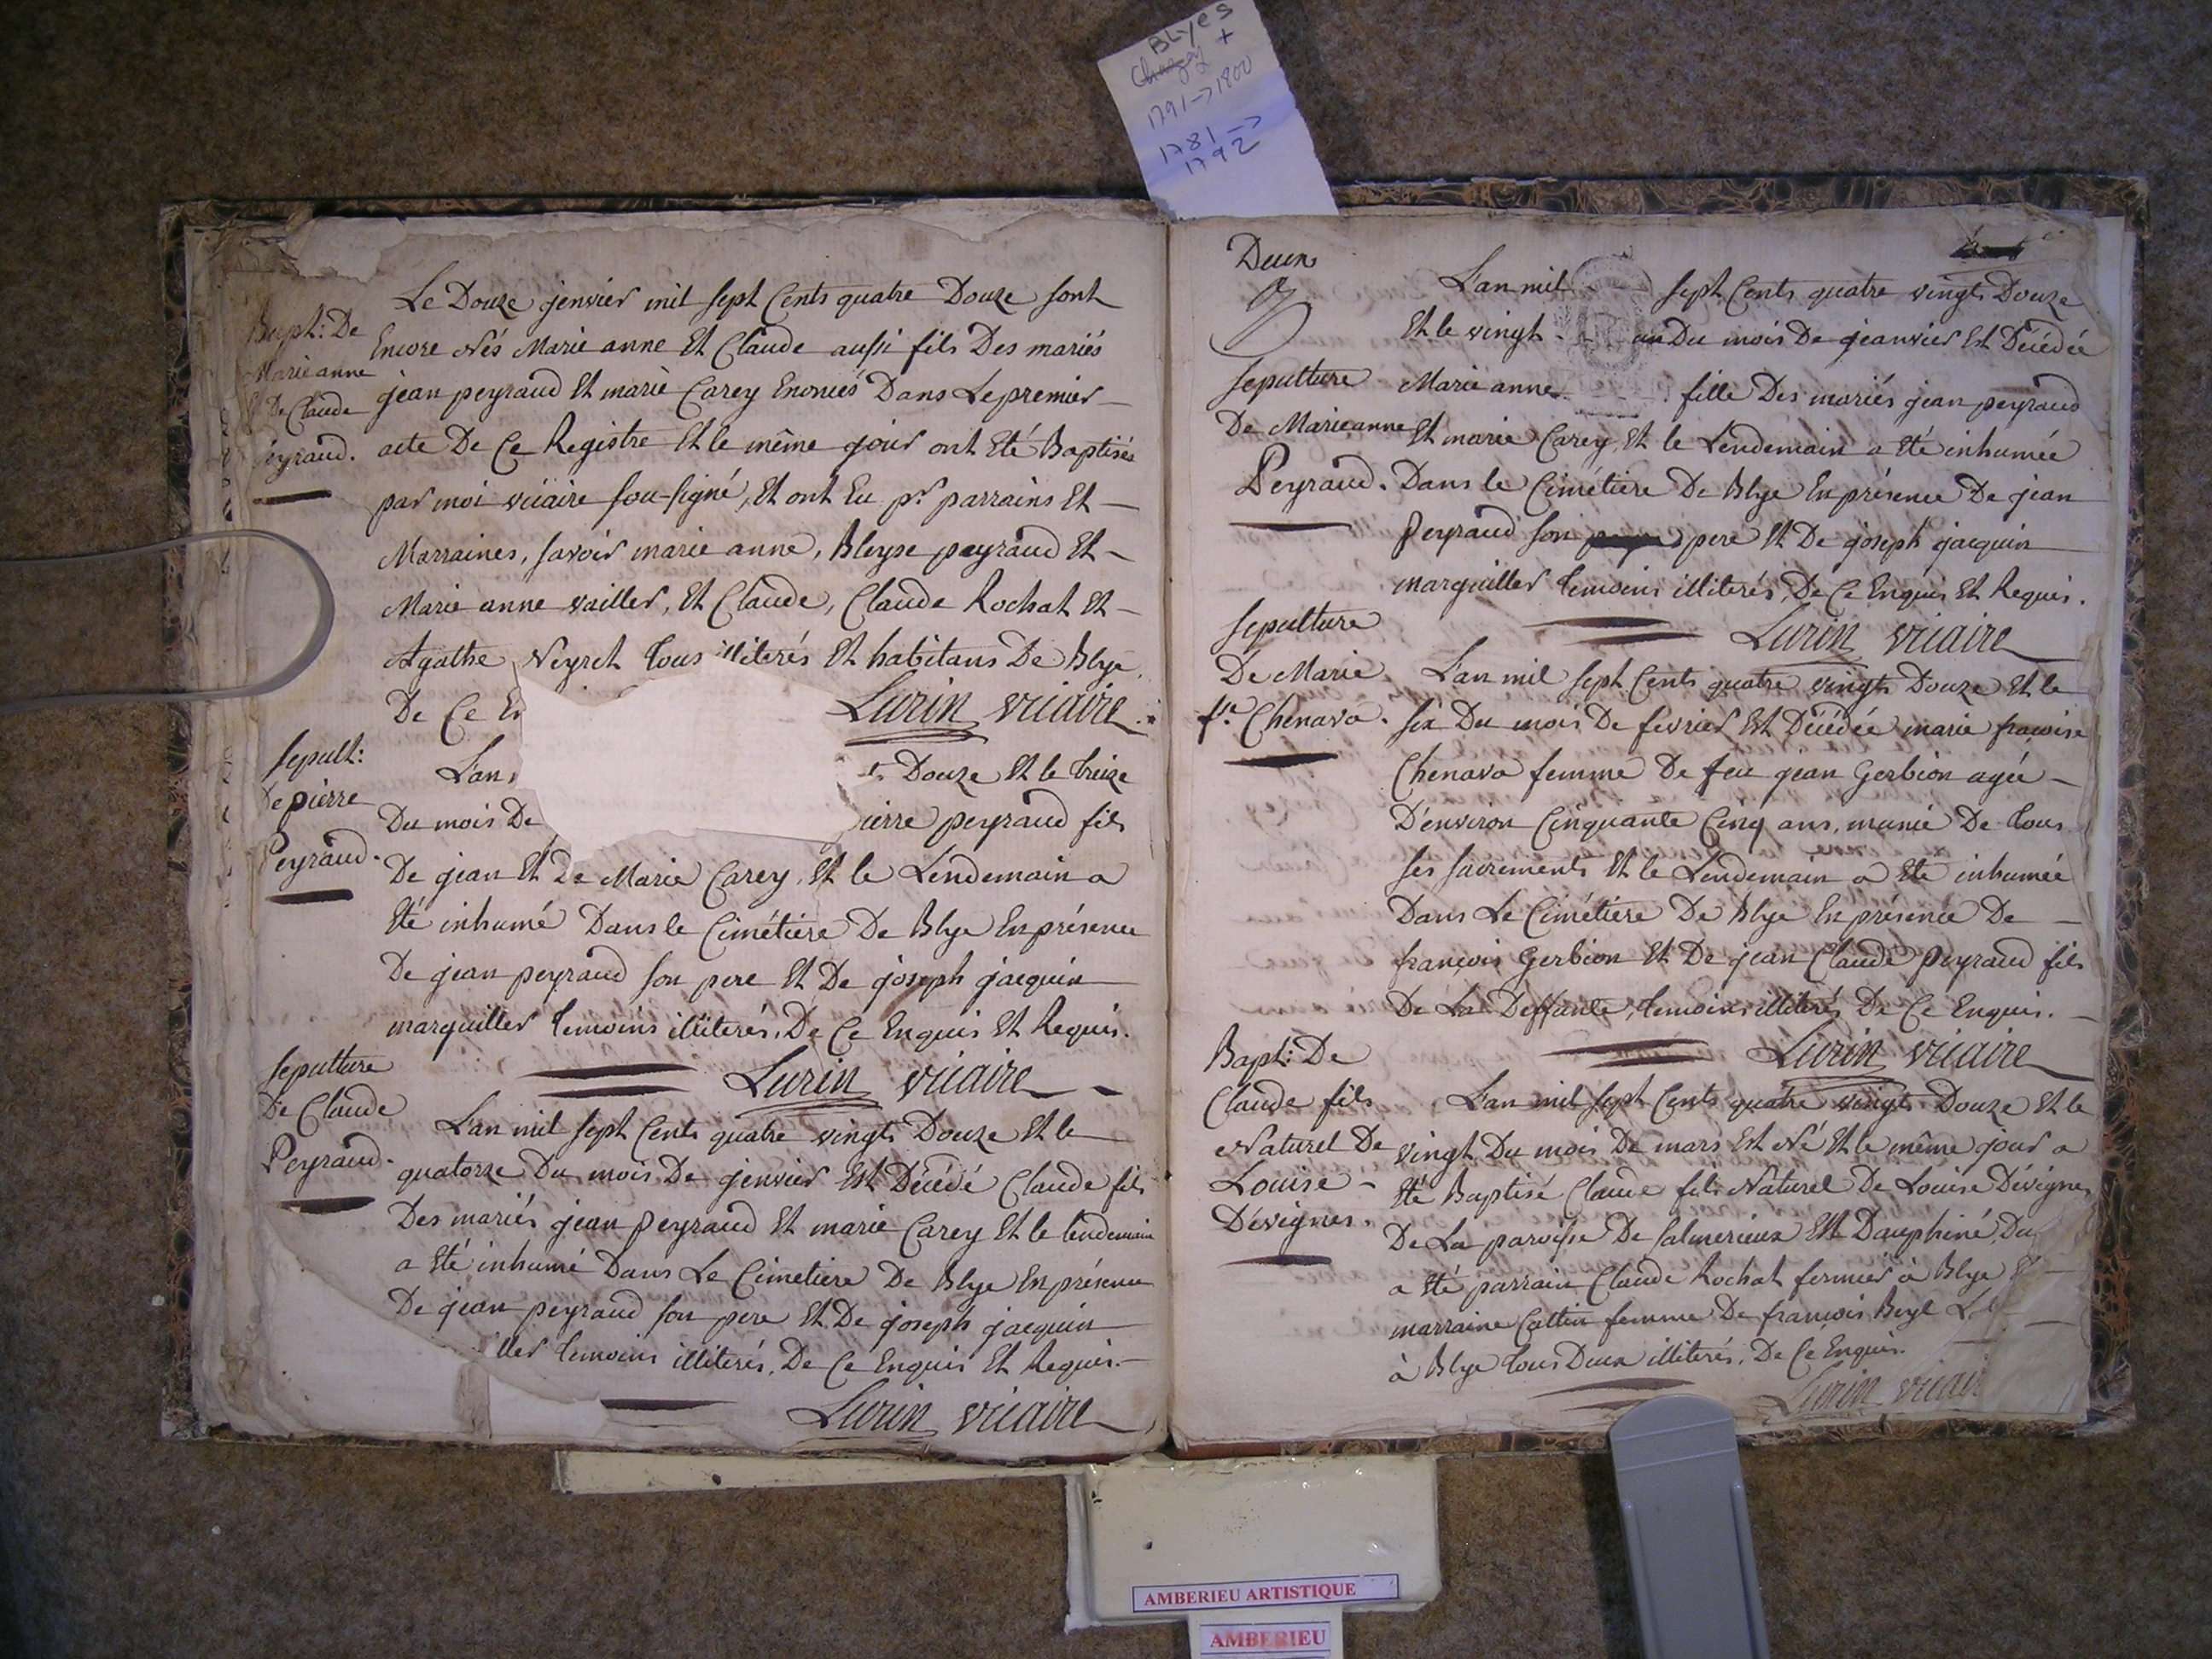 BLyes
Chazey +
1791->1800
1781->
1792
Bapt: De
Marie anne
Et De Claude
Peyraud.
Le Douze jenvier mil sept Cents quatre Douze sont
Encore Nés Marie anne Et Claude aussi fils Des mariés
jean peyraud Et marie Carey Enoncés Dans Le premier
acte De Ce Registre Et le même jour ont Eté Baptisés
par moi viciaire sou-signé, Et ont Eu pr. parrains Et
Marraines, savoir marie anne, Bleyse peyraud Et
Marie anne vailler, Et Claude, Claude Rochat Et
Agathe Neyret tous illiterés Et habitans De Blye.
De Ce En
Lurin viciaire
Sepult:
De pierre
Peyraud.
L'an
Douze Et le treize
Du mois De
ierre peyraud fils
De jean Et De Marie Carey, Et le Lendemain a
Eté inhumé Dans le Cimétiere De Blye En présence
De jean peyraud son pere Et De joseph jacquin
marguiller temoins illiterés, De Ce Enquis Et Requis.
Lurin viciaire
Sepulture
De Claude
Peyraud.
L'an mil sept Cents quatre vingts Douze Et le
quatorze Du mois De jenvier Est Décédé Claude fils
Des mariés jean Peyraud Et marie Carey Et le lendemain
a Eté inhumé Dans Le Cimetiere De Blye En présence
De jean peyraud son pere Et De joseph jacquin
ller temoins illiterés, De Ce Enquis Et Requis.
Lurin viciaire
Deux
Sepulture
De Marie anne
Peyraud.
L'an mil sept Cents quatre vingts Douze
Et le vingt un Du mois De jeanvier Est Décédée
Marie anne fille Des mariés jean peyraud
Et marie Carey, Et le Lendemain a Eté inhumée
Dans le Cimétiere De Blye En présence De jean
Peyraud son pere Et De joseph jacquin
marguiller temoins illiterés, De Ce Enquis Et Requis.
Lurin viciaire
Sepulture
De Marie
fse. Chenava.
L'an mil sept Cents quatre vingts Douze Et le
six Du mois De fevrier Est Décédée marie francoise
Chenava femme De feu jean Gerbion agée
D'environ Cinquante Cinq ans, munie De tous
ses sacrements Et le Lendemain a Eté inhumée
Dans Le Cimétiere De Blye En présence De
françois Gerbion Et De jean Claude Peyraud fils
De La Deffante, temoins illiterés De Ce Enquis.
Lurin viciaire
Bapt: De
Claude fils
Naturel De
Louise
Dévignes.
L'an mil sept Cents quatre vingts Douze Et le
vingt Du mois De mars Est Né Et le même jour a
Eté Baptisé Claude fils Naturel De Louise Dévignes
De La paroisse De salmerieux En Dauphiné, Du
a Eté parrain Claude Rochat fermier à Blye
marraine Cattin femme De francois Beyl
à Blye tous Deux illiterés, De Ce Enquis.
Lurin viciair
AMBERIEU ARTISTIQUE
AMBERIEU